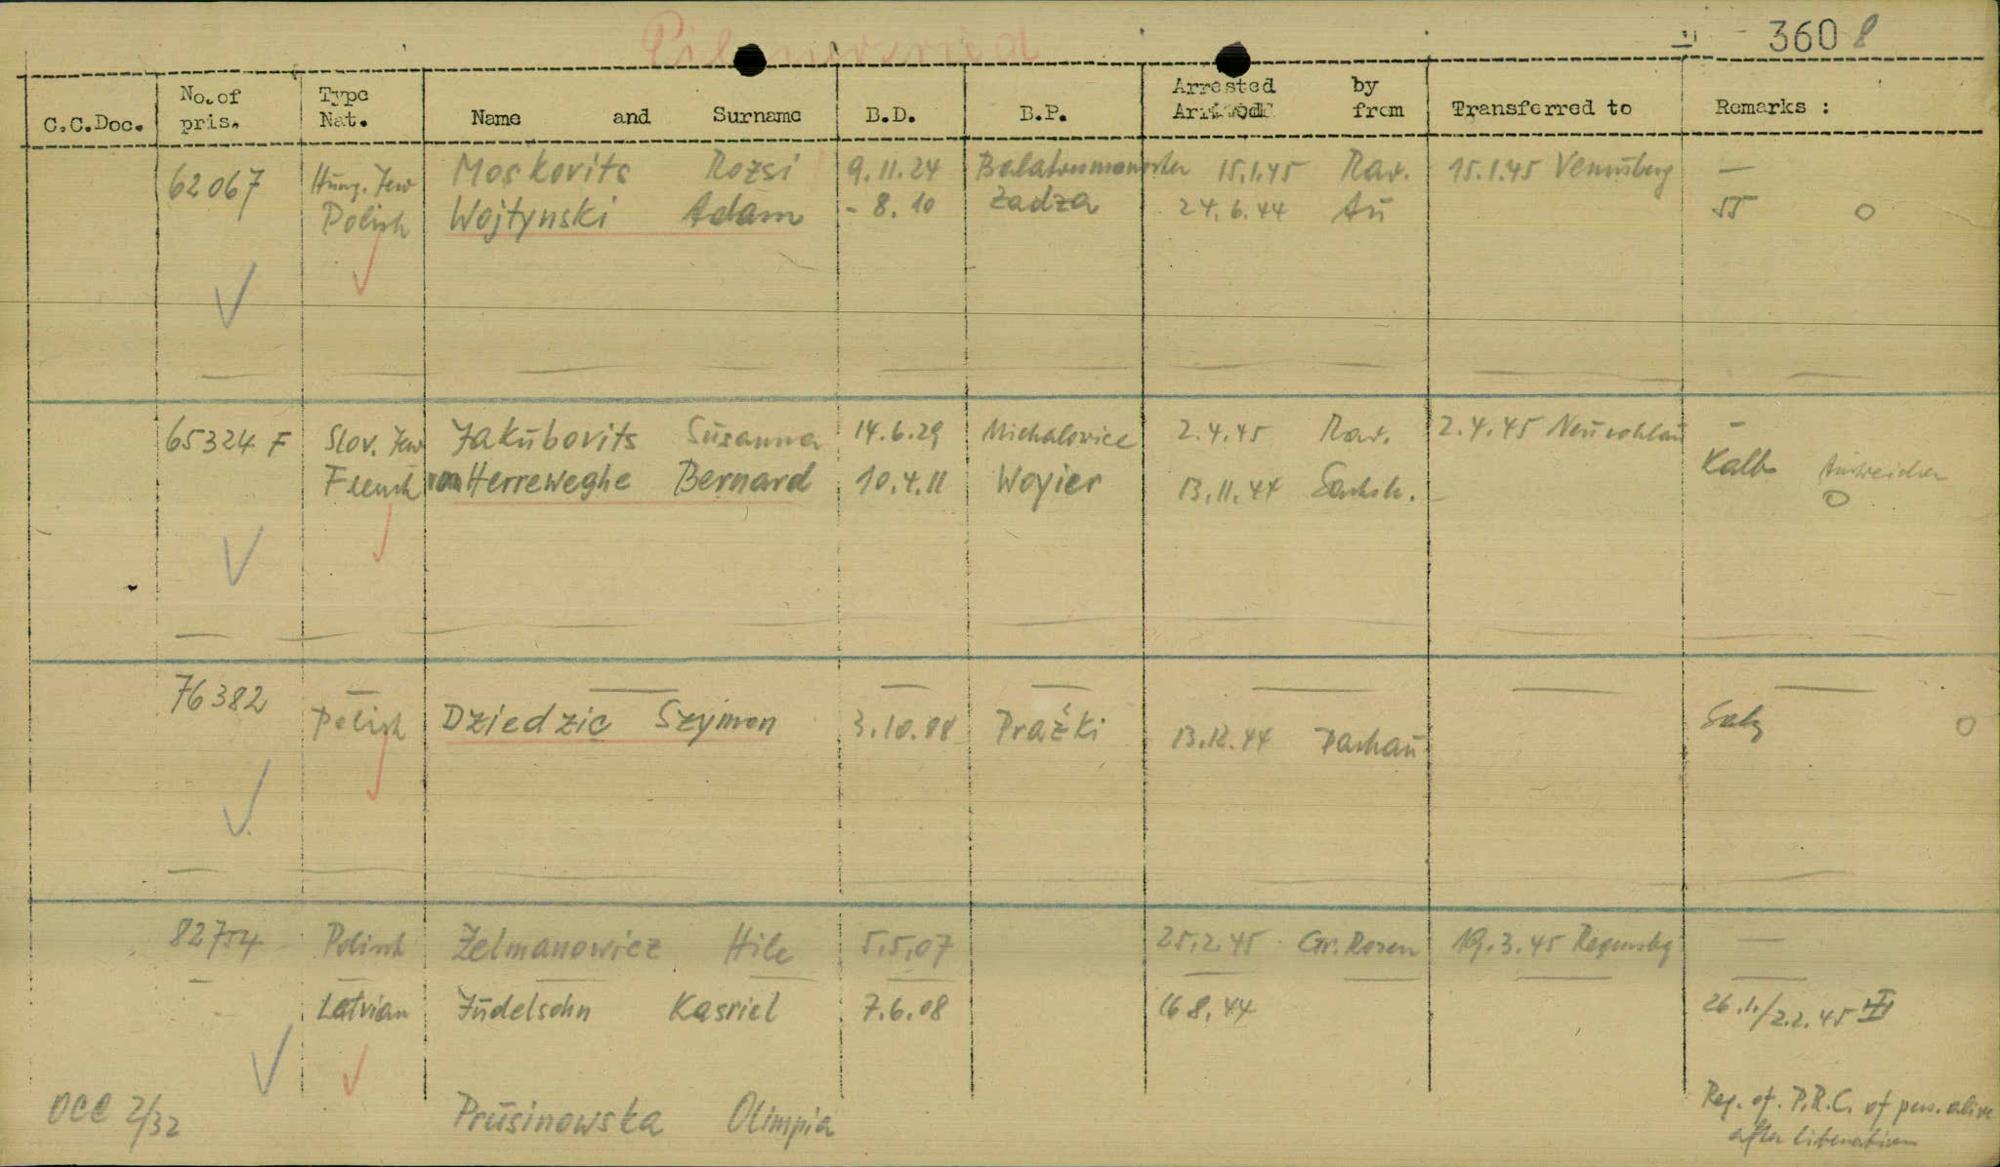 3608
C.C.Doc. No. of pris. Type Nat. Name and Surname B.D. B.P. Arrested by Arrived from Transferred to Remarks :
62067 Hung. Jew Moskovits Rozsi 9.11.24 15.1.45 Rav. 15.1.45 Venusberg —
Polish Wojtynski Adam - 8.10 Zadza 24.6.44 Au 55 o
65324 F Slov. Jew Jakubovits Susanna 14.6.29 Michalovice 2.4.45 Rav. 2.4.45 Neurohlau -
French van Herreweghe Bernard 10.4.11 Woyier 13.11.44 Sachsh. - Kalb o
76382 — — — — — — —
Polish Dziedzic Szymon 3.10.98 Prażki 13.12.44 Dachau Salz o
82754 Polish Zelmanowicz Hile 5.5.07 25.2.45 Gr. Rosen 19.3.45 Regensbg —
Latvian Judelsohn Kasriel 7.6.08 16 8.44 26.1./2.2.45 III
OCC 2/32 Prusinowska Olimpia Reg. of P.R.C. of pers. alive
after liberation